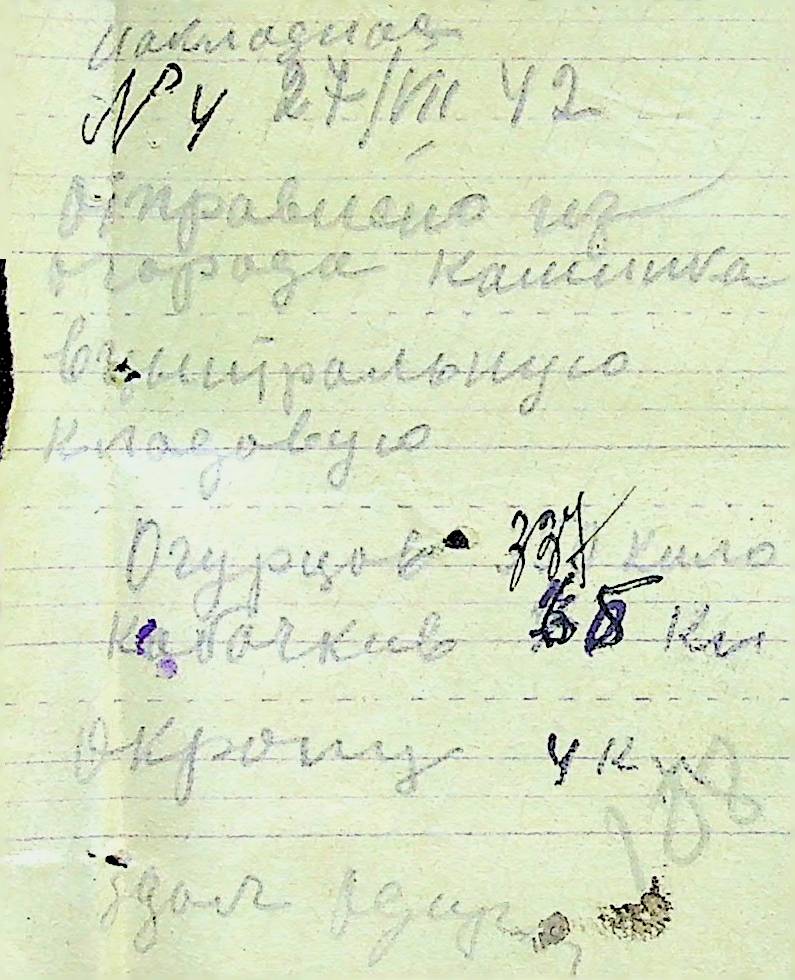 накладная
№ 4 27/VII 42
Отправлено из
огорода Камынка
вцынтральную
кладовую
Огурцов 337 кило
Кабачкив Кил
Окропу 4 к
108
здал